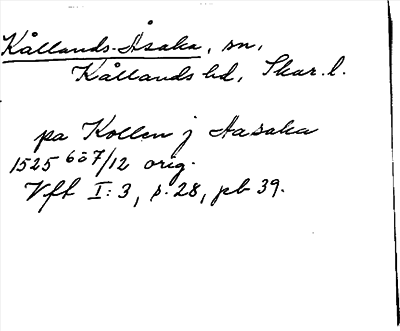 Kållands-Åsaka, sn,
Kållands hd, Skar. l.
pa Kollen j Aasaka
1525 6o7/12 orig.
Vft I:3, s. 28, pb 39.